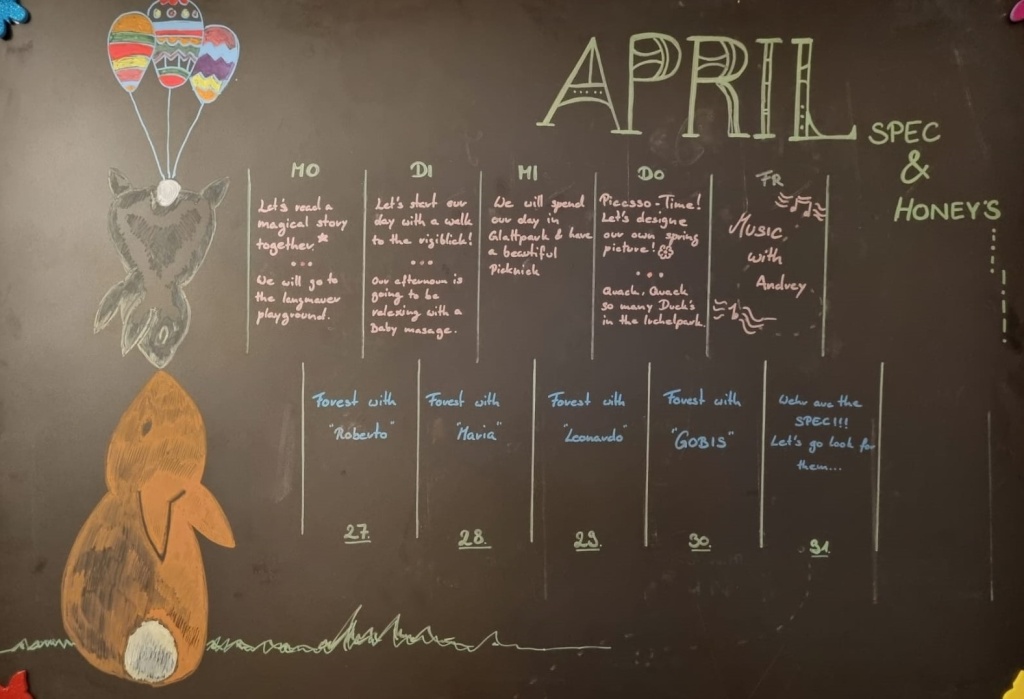 APRIL
SPEC
&
HONEY'S
MO
Let's read a
magical story
together.*
We will go to
the lengmauer
playground.
DI
Let's start our
day with a walk
to the rigiblick!
Our afternoon is
going to be
relaxing with a
Baby masage.
MI
We will spend
our day in
Glattpark & have
a beautiful
Picknick
DO
Picasso-Time!
Let's designe
our own spring
picture!
Quack, Quack
so many Duck's
in the Irchelpark.
FR
Music
with
Andrey
Forest with
"Roberto"
27.
Forest with
"Maria"
28.
Forest with
"Leonardo"
29.
Forest with
"GOBIS"
30.
Wehr are the
SPEC!!!
Let's go look for
them...
31.